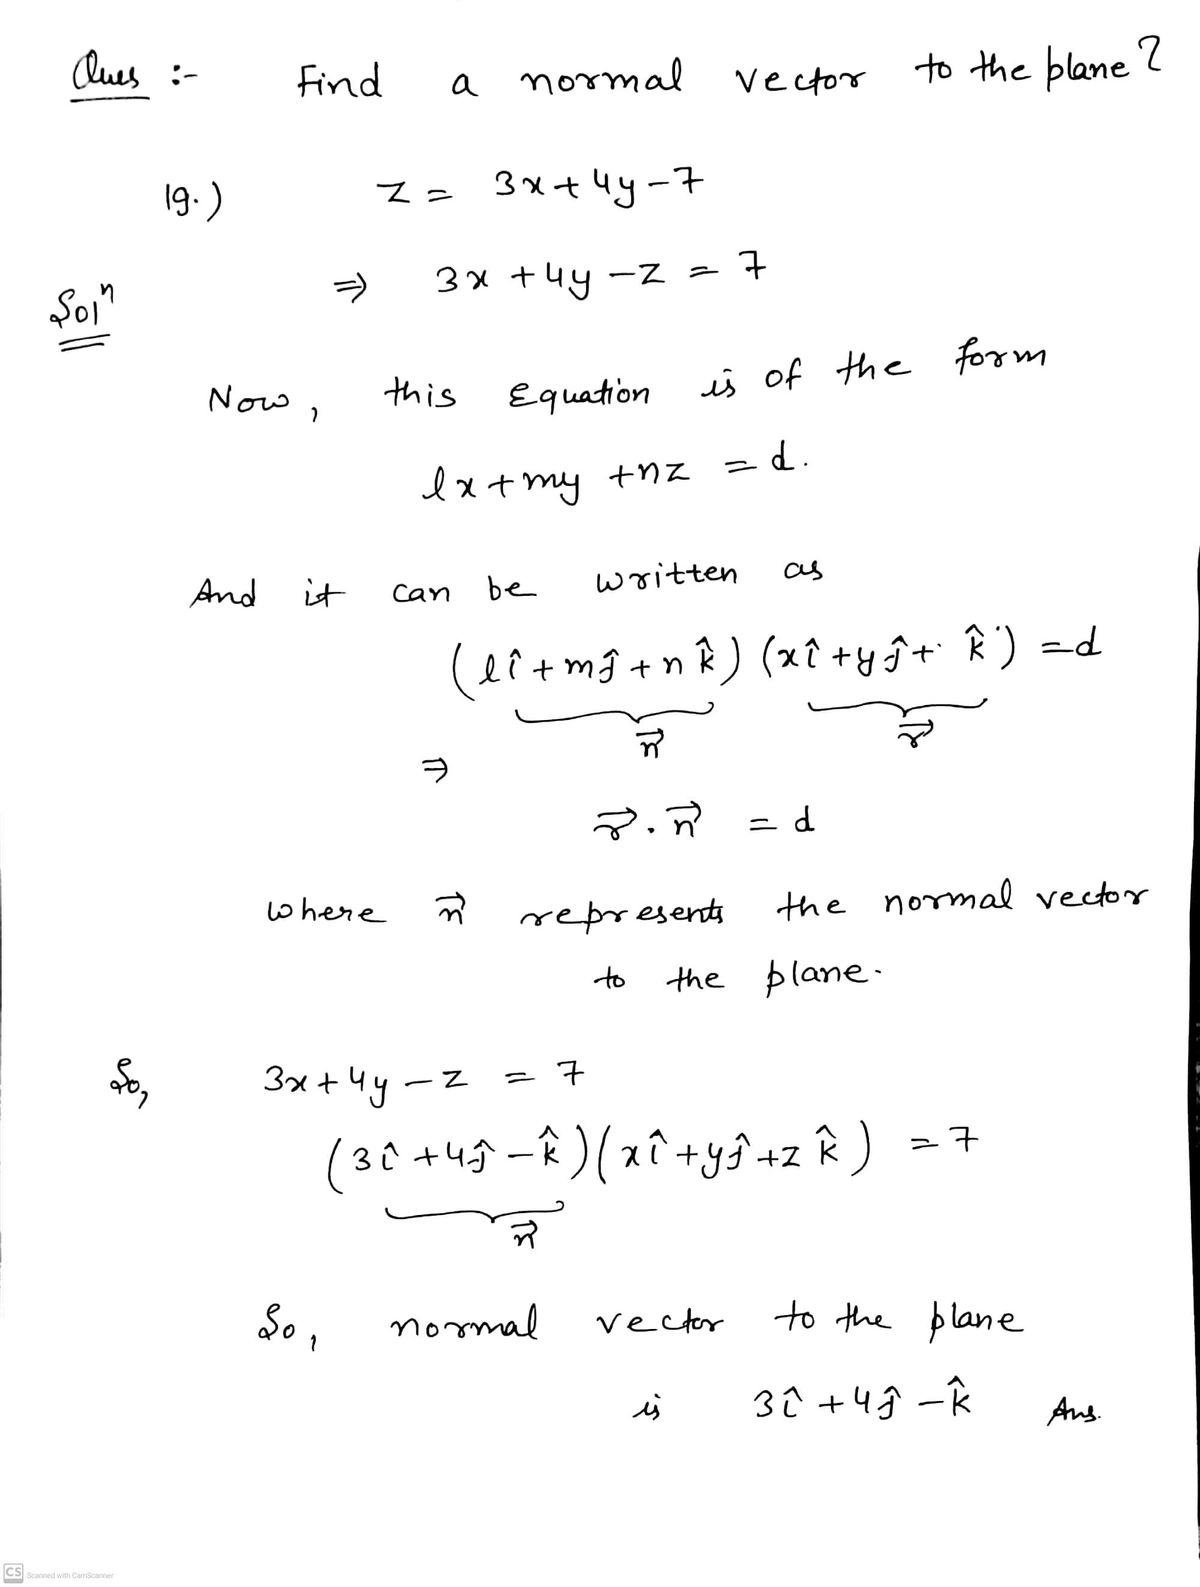 Ques :- Find a normal vector to the plane?
19.) z = 3x+4y-7
Solⁿ ⇒ 3x +4y -z = 7
Now, this Equation is of the form
lx+my +nz = d.
And it can be written as
(lî+mĵ+n k̂) (xî+yĵ+ k̂) =d
n⃗ r⃗
⇒
r⃗. n⃗ = d
where n⃗ represents the normal vector
to the plane.
So, 3x+4y-z = 7
(3î+4ĵ-k̂)(xî+yĵ+z k̂) =7
n⃗
So, normal vector to the plane
is 3î+4ĵ-k̂ Ans.
CS Scanned with CamScanner